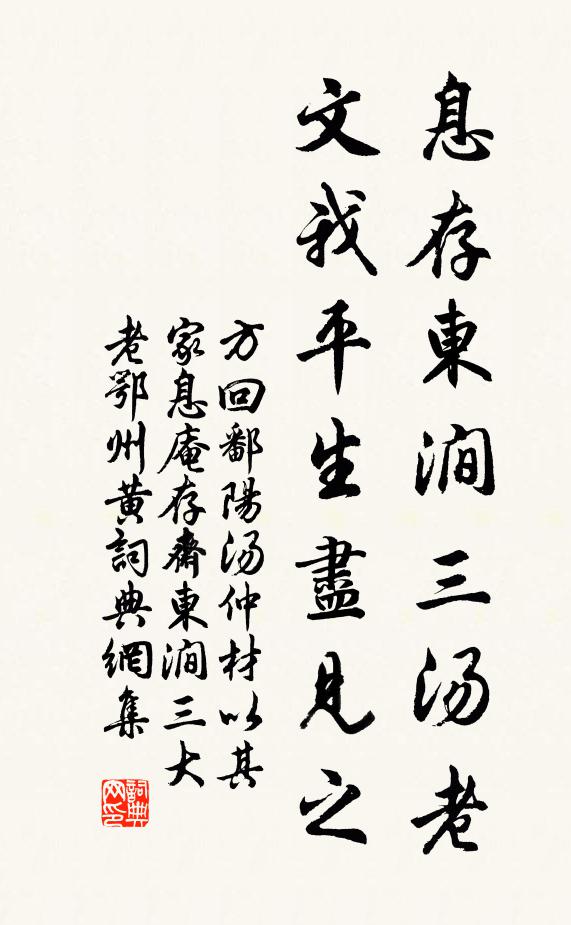 息存東澗三汤老
文我平生盡見之
方回鄱陽汤仲材以其
家息庵存齋東澗三大
老鄂州黄詞典網集
詞典网印